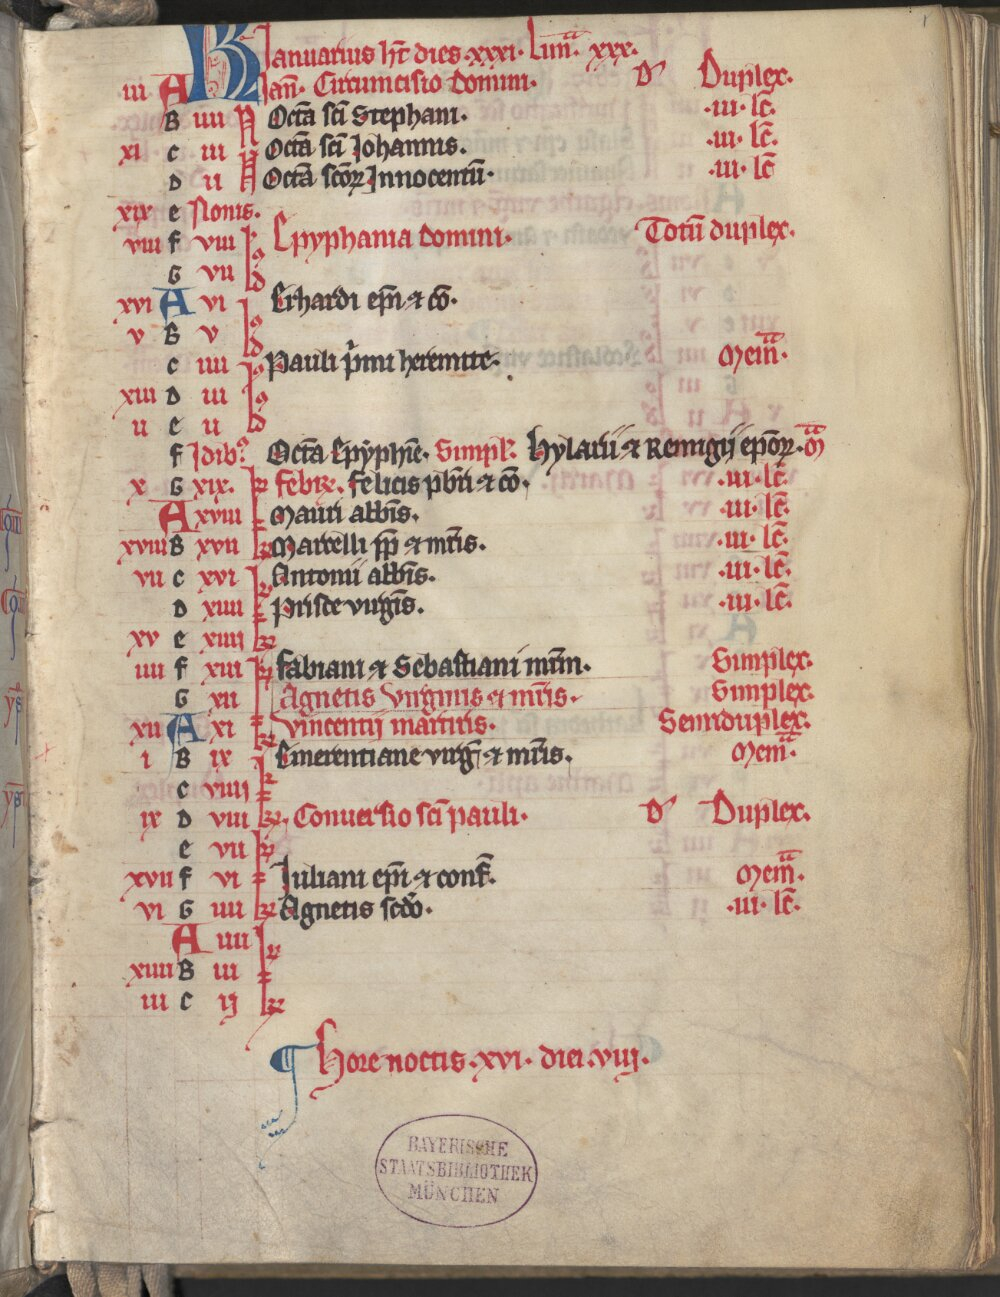 KL Ianuarius hт dies .xxxi. Lun̄a xxx.
iii A Ian̄. Circumcisio domini. D' Duplex.
B iiii N Octā sc̄i Stephani. .iii. lc̄.
xi c iii N Octā sc̄i Iohannis. .iii. lc̄.
d ii N Octā sc̄oꝝ Innocentū. .iii. lc̄
xix e Nonis.
viii f viii Epyphania domini. Totū duplex.
G vii
xvi A vi Erhardi ep̄i ⁊ cō.
v B v
c iiii Pauli p̄mi heremite. Mem̄a.
xiii D iii
ii e ii
f Idibꝰ Octā Epyphīe. Simpl'. Hylarii ⁊ Remigij ep̄oꝝ. m̄
x G xix. Febr. Felicis pb̄ri ⁊ cō. .iii. lc̄.
A xviii Mauri abb̄is. .iii. lc̄.
xviii B xvii Marcelli pp̄ ⁊ mr̄is. .iii. lc̄.
vii c xvi Antonii abb̄is. .iii. lc̄.
D xiiii Prisce virḡis. .iii. lc̄.
xv e xiiii
iiii f xiii Fabiani ⁊ Sebastiani mr̄m. Simplex.
G xii Agnetis virginis ⁊ mr̄is. Simplex.
xii A xi Vincentij martiris. Semiduplex.
i B ix Emerentiane virḡ ⁊ mr̄is. Mem̄a.
c viiii
ix D viii Conuersio sc̄i pauli. D' Duplex.
e vii
xvii f vi Iuliani ep̄i ⁊ conf̄. Mem̄a.
vi G iiii Agnetis sc̄do. .iii. lc̄.
A iiii
xiiii B iii
iii c ij
¶ Hore noctis .xvi. diei .viij.
BAYERISCHE
STAATSBIBLIOTHEK
MÜNCHEN